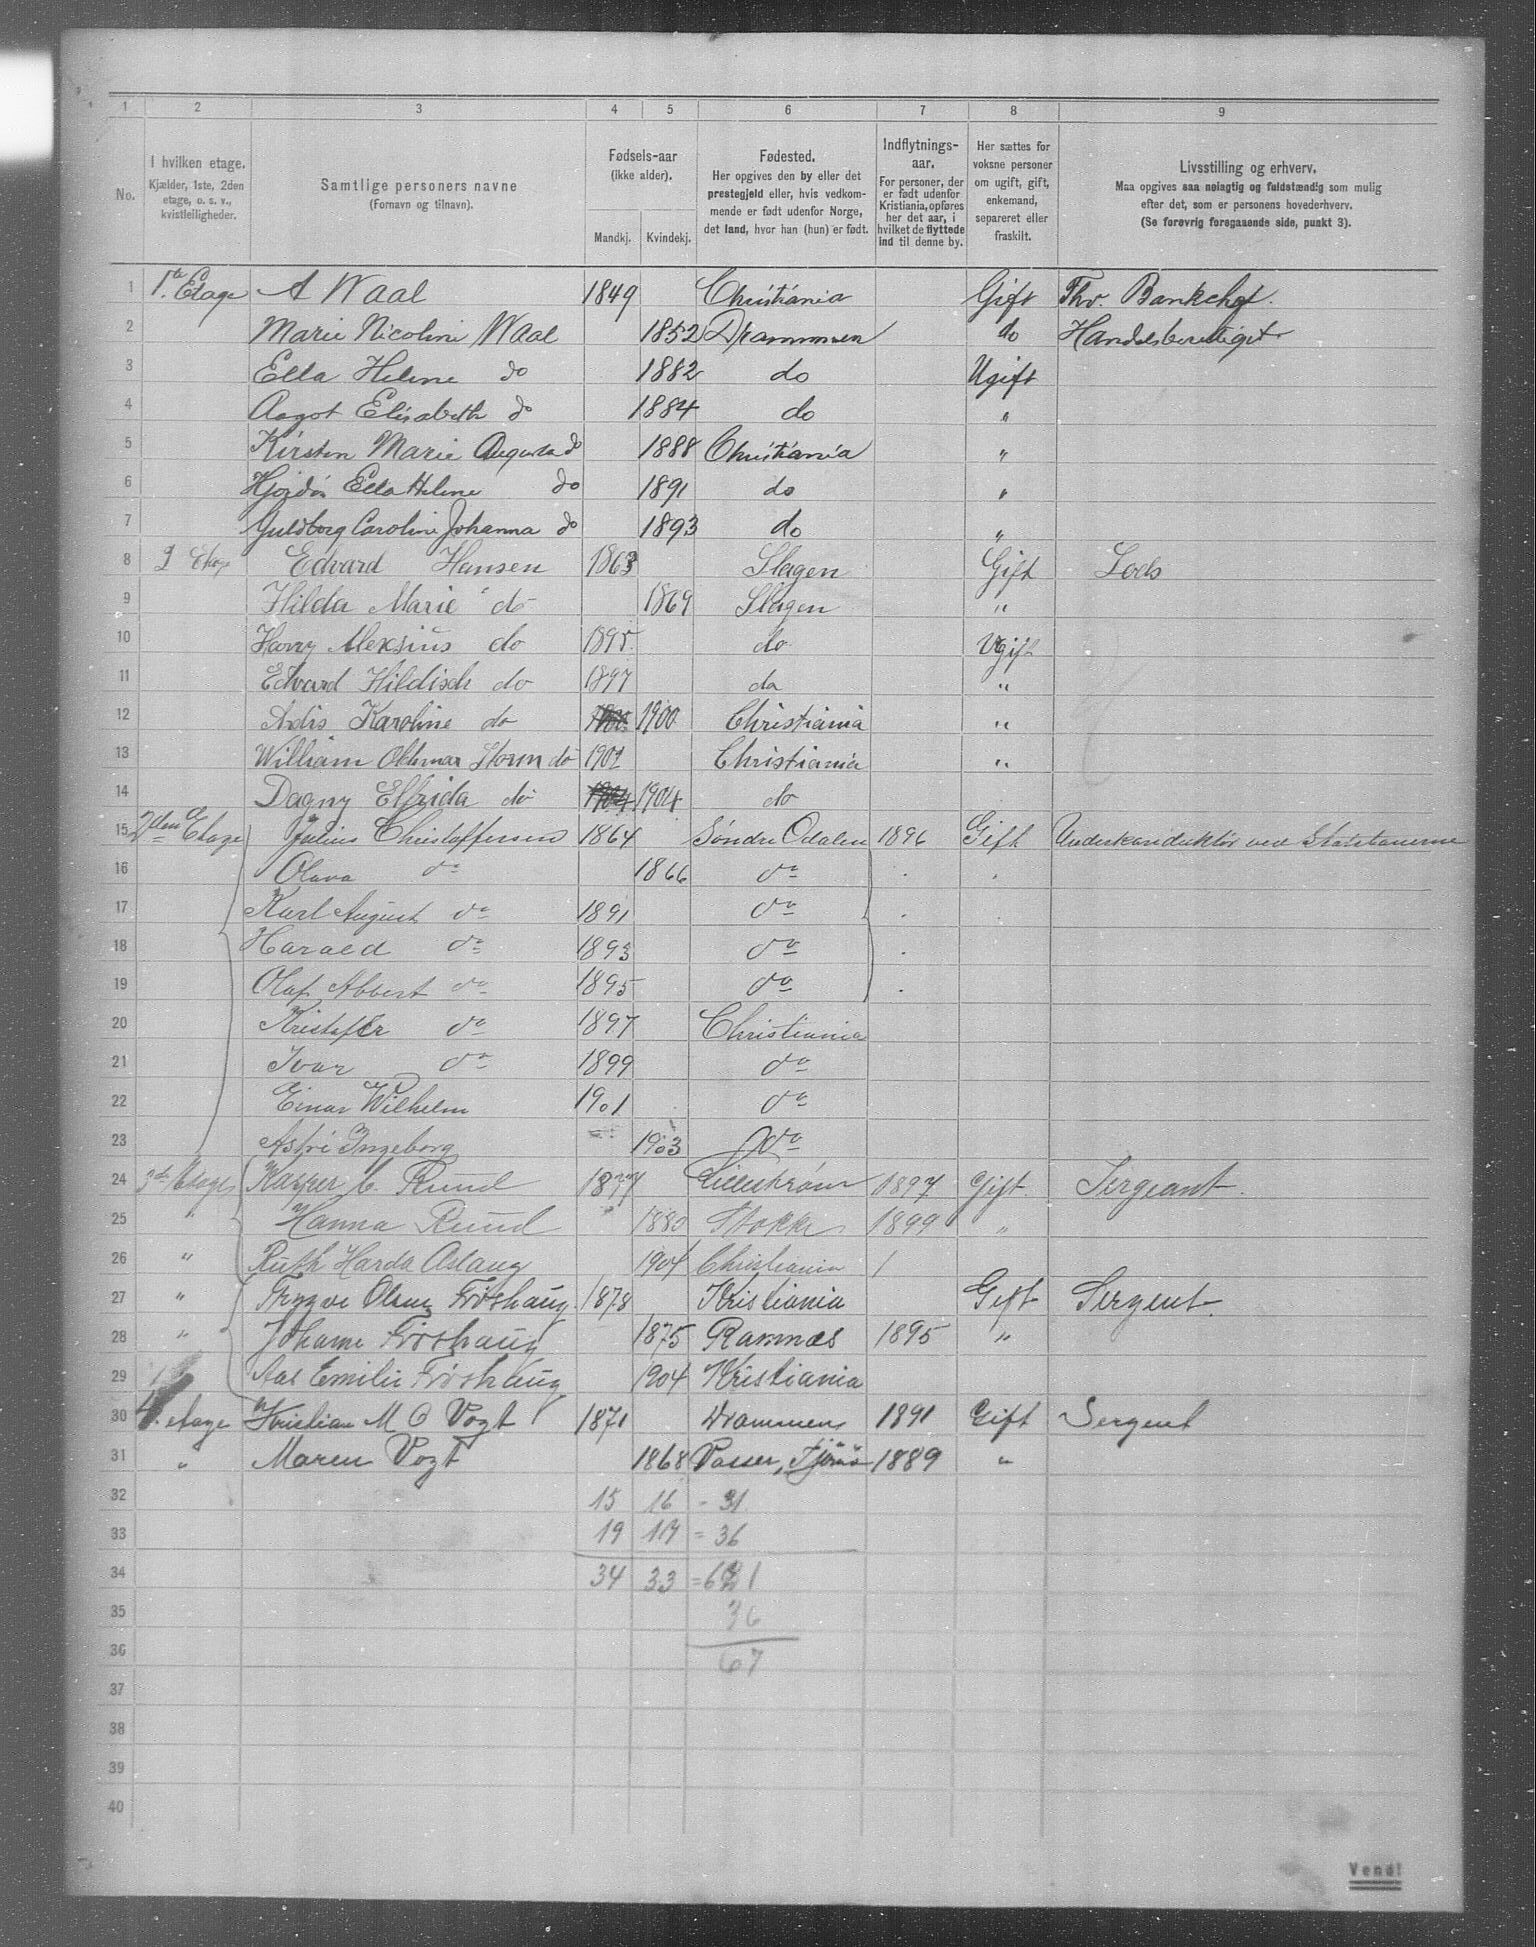 1 2 3 4 5 6 7 8 9
No.
I hvilken etage.
Kjælder, 1ste, 2den
etage, o. s. v.,
kvistleiligheder.
Samtlige personers navne
(Fornavn og tilnavn).
Fødsels-aar
(ikke alder).
Mandkj. Kvindekj.
Fødested.
Her opgives den by eller det
prestegjeld eller, hvis vedkom-
mende er født udenfor Norge,
det land, hvor han (hun) er født.
Indflytnings-
aar.
For personer, der
er født udenfor
Kristiania, opføres
her det aar, i
hvilket de flyttede
ind til denne by.
Her sættes for
voksne personer
om ugift, gift,
enkemand,
separeret eller
fraskilt.
Livsstilling og erhverv.
Maa opgives saa nøiagtig og fuldstændig som mulig
efter det, som er personens hovederhverv.
(Se forøvrig foregaaende side, punkt 3).
1 1ste Etage A Waal 1849 Christiania Gift Fhv. Bankchef.
2 Marie Nicoline Waal 1852 Drammen do Handelsberettiget
3 Ella Helene do 1882 do Ugift
4 Aagot Elisabeth do 1884 do "
5 Kirsten Marie Augusta do 1888 Christiania "
6 Hjördis Ella Helene do 1891 do "
7 Guldborg Caroline Johanna do 1893 do "
8 2 Etage Edvard Hansen 1863 Slagen Gift Lods
9 Hilda Marie do 1869 Slagen "
10 Harry Aleksius do 1895 do Ugift
11 Edvard Hildisch do 1897 do "
12 Ardis Karoline do 1900 Christiania "
13 William Othmar Storm do 1902 Christiania "
14 Dagny Elfrida do 1904 1904 do
15 2den Etage Julius Christoffersen 1864 Søndre Odalen 1896 Gift Underkonduktør ved Statsbanerne
16 Olava do 1866 do
17 Karl August do 1891 do
18 Harald do 1893 do
19 Olaf Albert do 1895 do
20 Kristofer do 1897 Christiania
21 Ivar do 1899 do
22 Einar Wilhelm 1901 do
23 Astri Ingeborg 1903 do
24 3de Etage Kasper C. Ruud 1877 Lillestrøm 1897 Gift Sergeant.
25 " Hanna Ruud 1880 Stokke 1899 "
26 " Ruth Harda Aslaug 1904 Christiania
27 " Trygve Olsen Frøshaug 1878 Kristiania Gift Sergent.
28 " Johanne Frøshaug 1875 Ramnæs 1895 "
29 Aas Emilie Frøshaug 1904 Kristiania
30 4. etage Kristian M C Vogt 1871 Drammen 1891 Gift Sergent
31 " Maren Vogt 1868 Vasser, Tjømø 1889 "
32 15 16 - 31
33 19 17 = 36
34 34 33 = 67 1
35 36
36 67
37
38
39
40
Vend!